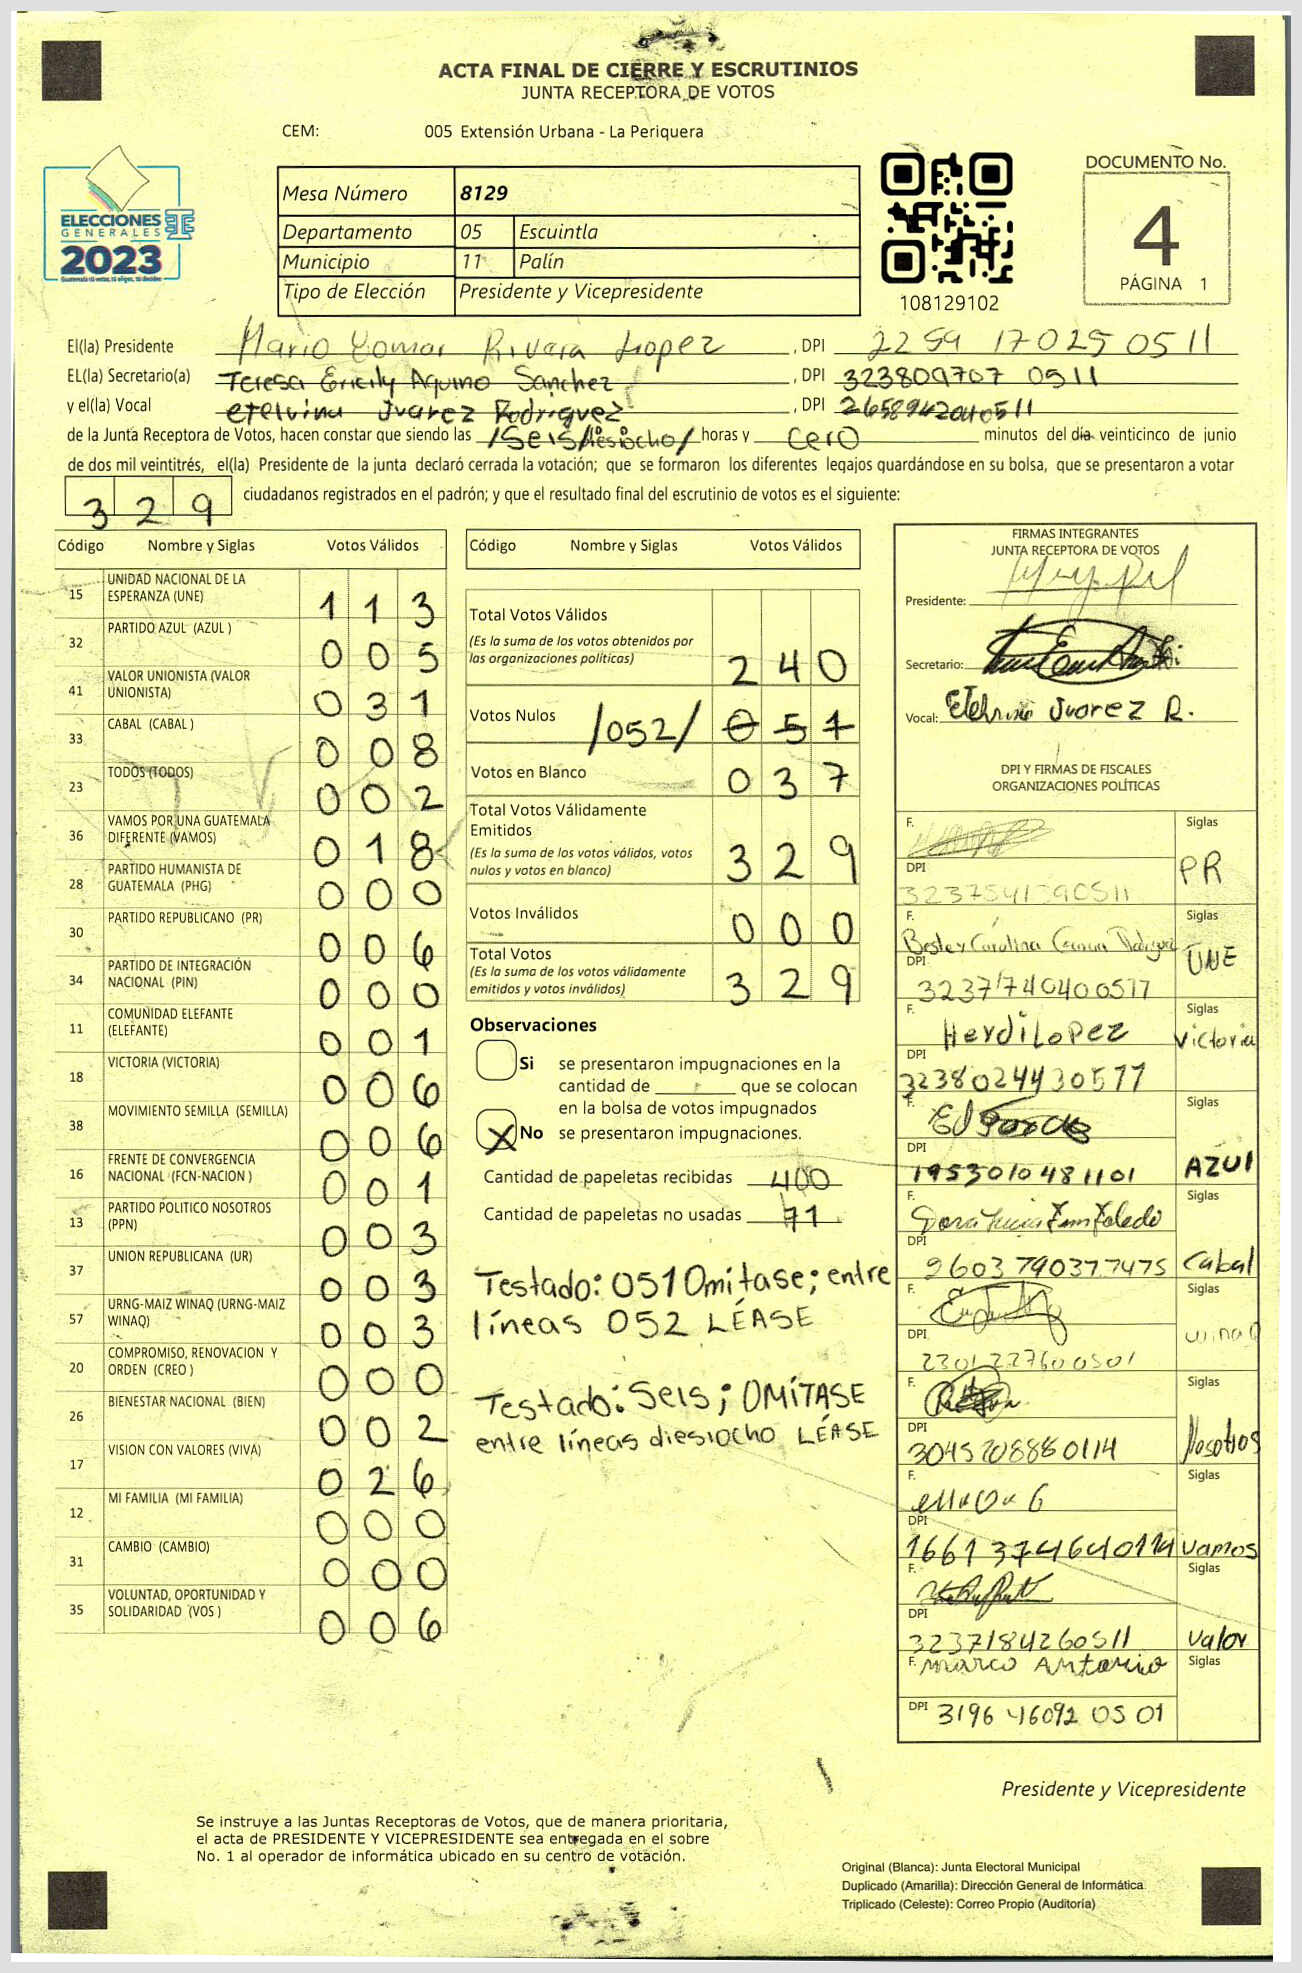 ACTA FINAL DE CIERRE Y ESCRUTINIOS
JUNTA RECEPTORA DE VOTOS
CEM: 005 Extensión Urbana - La Periquera
DOCUMENTO No.
4
PÁGINA 1
ELECCIONES
GENERALES
2023
Mesa Número 8129
Departamento 05 Escuintla
Municipio 11 Palín
Tipo de Elección Presidente y Vicepresidente
108129102
El(la) Presidente Mario Yomar Rivera Lopez , DPI 2259 17025 0511
EL(la) Secretario(a) Teresa Ericily Aquino Sanchez , DPI 323809707 0511
y el(la) Vocal Etelvina Juarez Rodriguez , DPI 2658942040511
de la Junta Receptora de Votos, hacen constar que siendo las /Seis/diesiocho/ horas y cero minutos del día veinticinco de junio
de dos mil veintitrés, el(la) Presidente de la junta declaró cerrada la votación; que se formaron los diferentes legajos quardándose en su bolsa, que se presentaron a votar
329 ciudadanos registrados en el padrón; y que el resultado final del escrutinio de votos es el siguiente:
Código Nombre y Siglas Votos Válidos
15 UNIDAD NACIONAL DE LA ESPERANZA (UNE) 113
32 PARTIDO AZUL (AZUL ) 005
41 VALOR UNIONISTA (VALOR UNIONISTA) 031
33 CABAL (CABAL ) 008
23 TODOS (TODOS) 002
36 VAMOS POR UNA GUATEMALA DIFERENTE (VAMOS) 018
28 PARTIDO HUMANISTA DE GUATEMALA (PHG) 000
30 PARTIDO REPUBLICANO (PR) 006
34 PARTIDO DE INTEGRACIÓN NACIONAL (PIN) 000
11 COMUNIDAD ELEFANTE (ELEFANTE) 001
18 VICTORIA (VICTORIA) 006
38 MOVIMIENTO SEMILLA (SEMILLA) 006
16 FRENTE DE CONVERGENCIA NACIONAL (FCN-NACION ) 001
13 PARTIDO POLITICO NOSOTROS (PPN) 003
37 UNION REPUBLICANA (UR) 003
57 URNG-MAIZ WINAQ (URNG-MAIZ WINAQ) 003
20 COMPROMISO, RENOVACION Y ORDEN (CREO ) 000
26 BIENESTAR NACIONAL (BIEN) 002
17 VISION CON VALORES (VIVA) 026
12 MI FAMILIA (MI FAMILIA) 000
31 CAMBIO (CAMBIO) 000
35 VOLUNTAD, OPORTUNIDAD Y SOLIDARIDAD (VOS ) 006
Código Nombre y Siglas Votos Válidos
Total Votos Válidos
(Es la suma de los votos obtenidos por
las organizaciones políticas) 240
Votos Nulos /052/ 051
Votos en Blanco 037
Total Votos Válidamente
Emitidos
(Es la suma de los votos válidos, votos
nulos y votos en blanco) 329
Votos Inválidos 000
Total Votos
(Es la suma de los votos válidamente
emitidos y votos inválidos) 329
Observaciones
Si se presentaron impugnaciones en la
cantidad de que se colocan
en la bolsa de votos impugnados
X No se presentaron impugnaciones.
Cantidad de papeletas recibidas 400
Cantidad de papeletas no usadas 71
Testado: 051 Omitase; entre
líneas 052 LÉASE
Testado: Seis; OMÍTASE
entre líneas diesiocho LÉASE
FIRMAS INTEGRANTES
JUNTA RECEPTORA DE VOTOS
Presidente:
Secretario:
Vocal: Etelvina Juarez R.
DPI Y FIRMAS DE FISCALES
ORGANIZACIONES POLÍTICAS
F. Siglas
DPI PR
F. Siglas
Besley Carolina
DPI UNE
3237740400511
F. Siglas
Herdi Lopez Victoria
DPI
3238024430511
F. Siglas
DPI AZUL
1953010481101
F. Siglas
DPI Cabal
F. Siglas
DPI winaq
2301227600501
F. Siglas
DPI Nosotros
F. Siglas
DPI
1661374640114 vamos
F. Siglas
DPI
3237184260511 Valor
F. Marco Antonio Siglas
DPI 3196 46092 0501
Presidente y Vicepresidente
Se instruye a las Juntas Receptoras de Votos, que de manera prioritaria,
el acta de PRESIDENTE Y VICEPRESIDENTE sea entregada en el sobre
No. 1 al operador de informática ubicado en su centro de votación.
Original (Blanca): Junta Electoral Municipal
Duplicado (Amarilla): Dirección General de Informática
Triplicado (Celeste): Correo Propio (Auditoría)